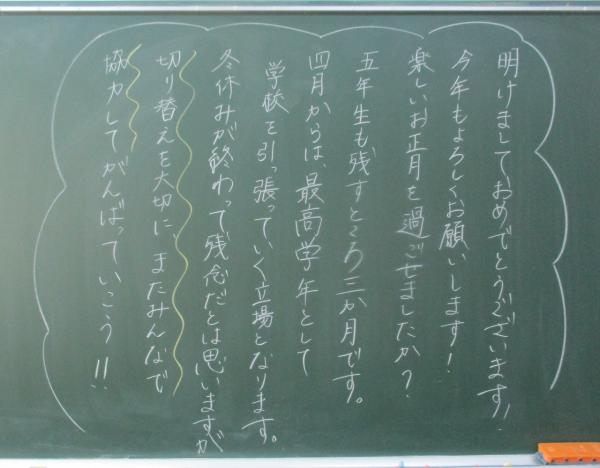 明けましておめでとうございます!
今年もよろしくお願いします!
楽しいお正月を過ごせましたか?
五年生も残すところ三か月です。
四月からは、最高学年として
学校を引っ張っていく立場となります。
冬休みが終わって残念だとは思いますが
切り替えを大切に、またみんなで
協力してがんばっていこう!!